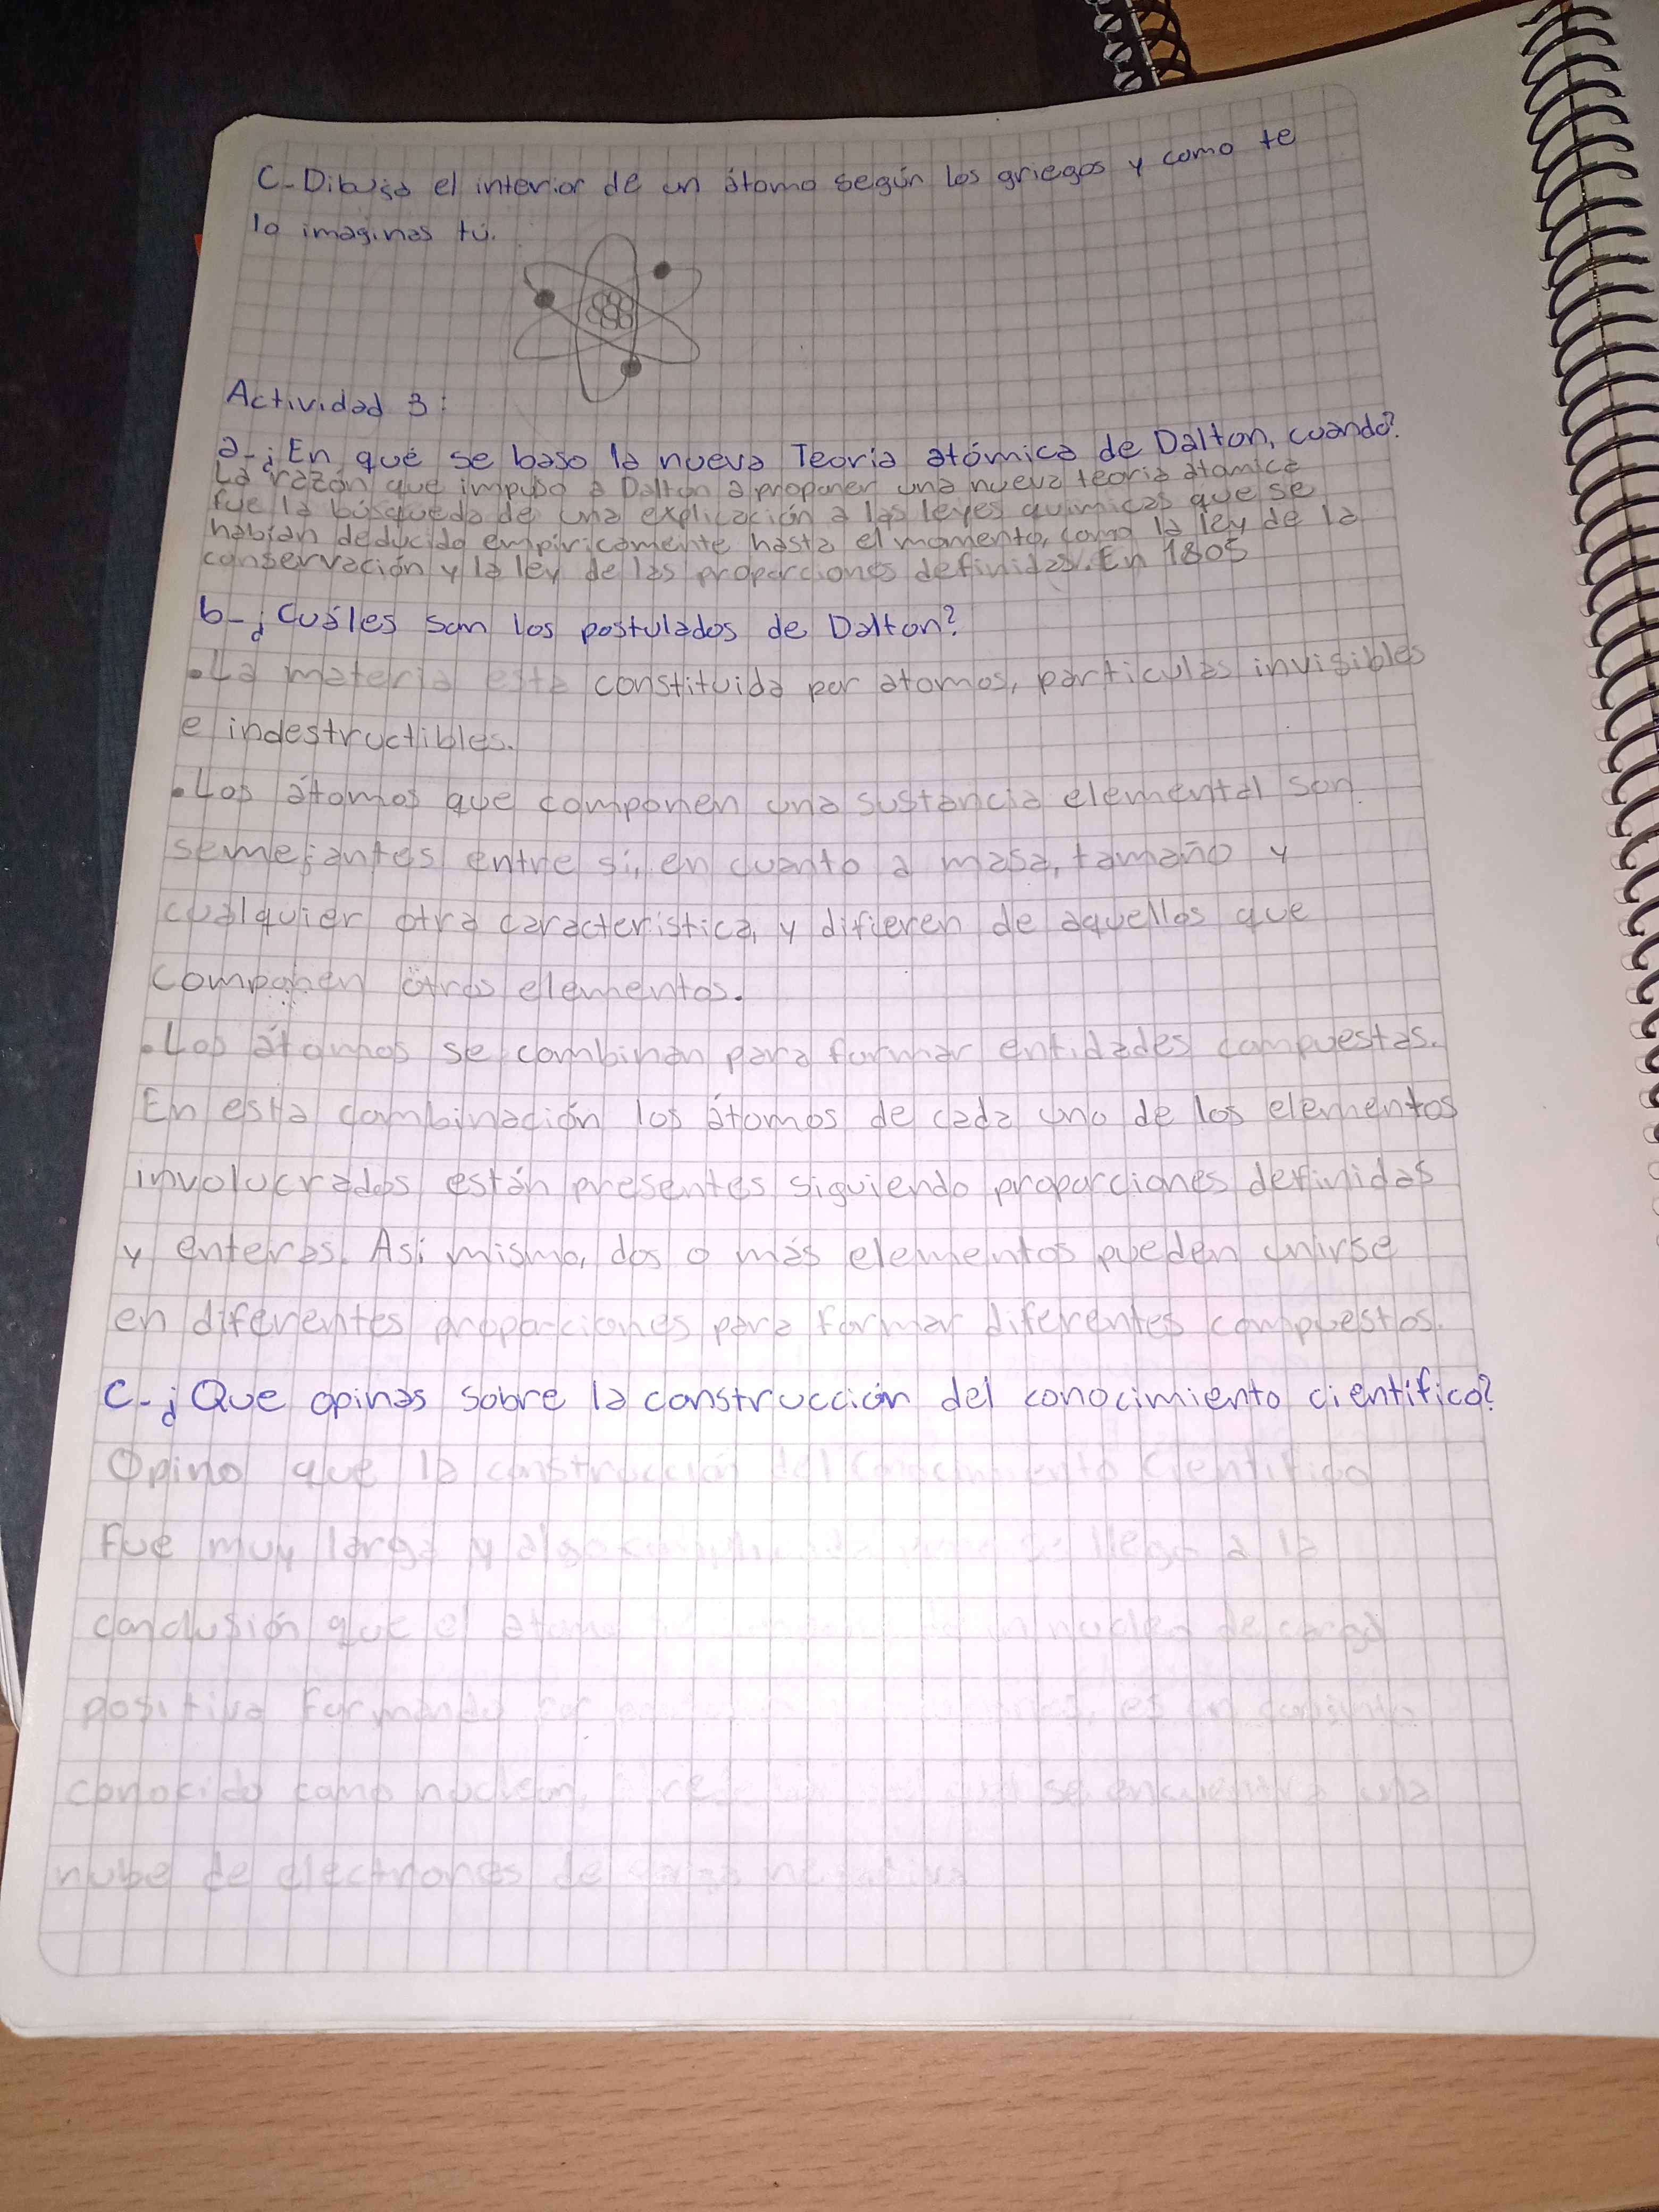 C-Dibuja el interior de un átomo según los griegos y como te
lo imaginas tú.
Actividad 3:
a-¿En qué se baso la nueva Teoria atómica de Dalton, cuando?
La razón que impulso a Dalton a proponer una nueva teoria atomica
fue la búsqueda de una explicación a las leyes quimicas que se
habían deducido empiricamente hasta el momento, como la ley de la
conservación y la ley de las proporciones definidas. En 1805
b-¿Cuáles son los postulados de Dalton?
•La materia esta constituida por atomos, particulas invisibles
e indestructibles.
•Los átomos que componen una sustancia elemental son
semejantes entre sí, en cuanto a masa, tamaño y
cualquier otra caracteristica, y difieren de aquellos que
componen otros elementos.
•Los átomos se combinan para formar entidades compuestas.
En esta combinación los átomos de cada uno de los elementos
involucrados están presentes siguiendo proporciones definidas
y enteras. Asi mismo, dos o más elementos pueden unirse
en diferentes proporciones para formar diferentes compuestos.
C-¿Que opinas sobre la construcción del conocimiento cientifico?
Opino que la construcción del conocimiento cientifico
fue muy larga y algo se llego a la
conclusión que el atomo nucleo de carga
positiva formando es un conjunto
conocido como se encuentra una
nube de electrones de carga negativa